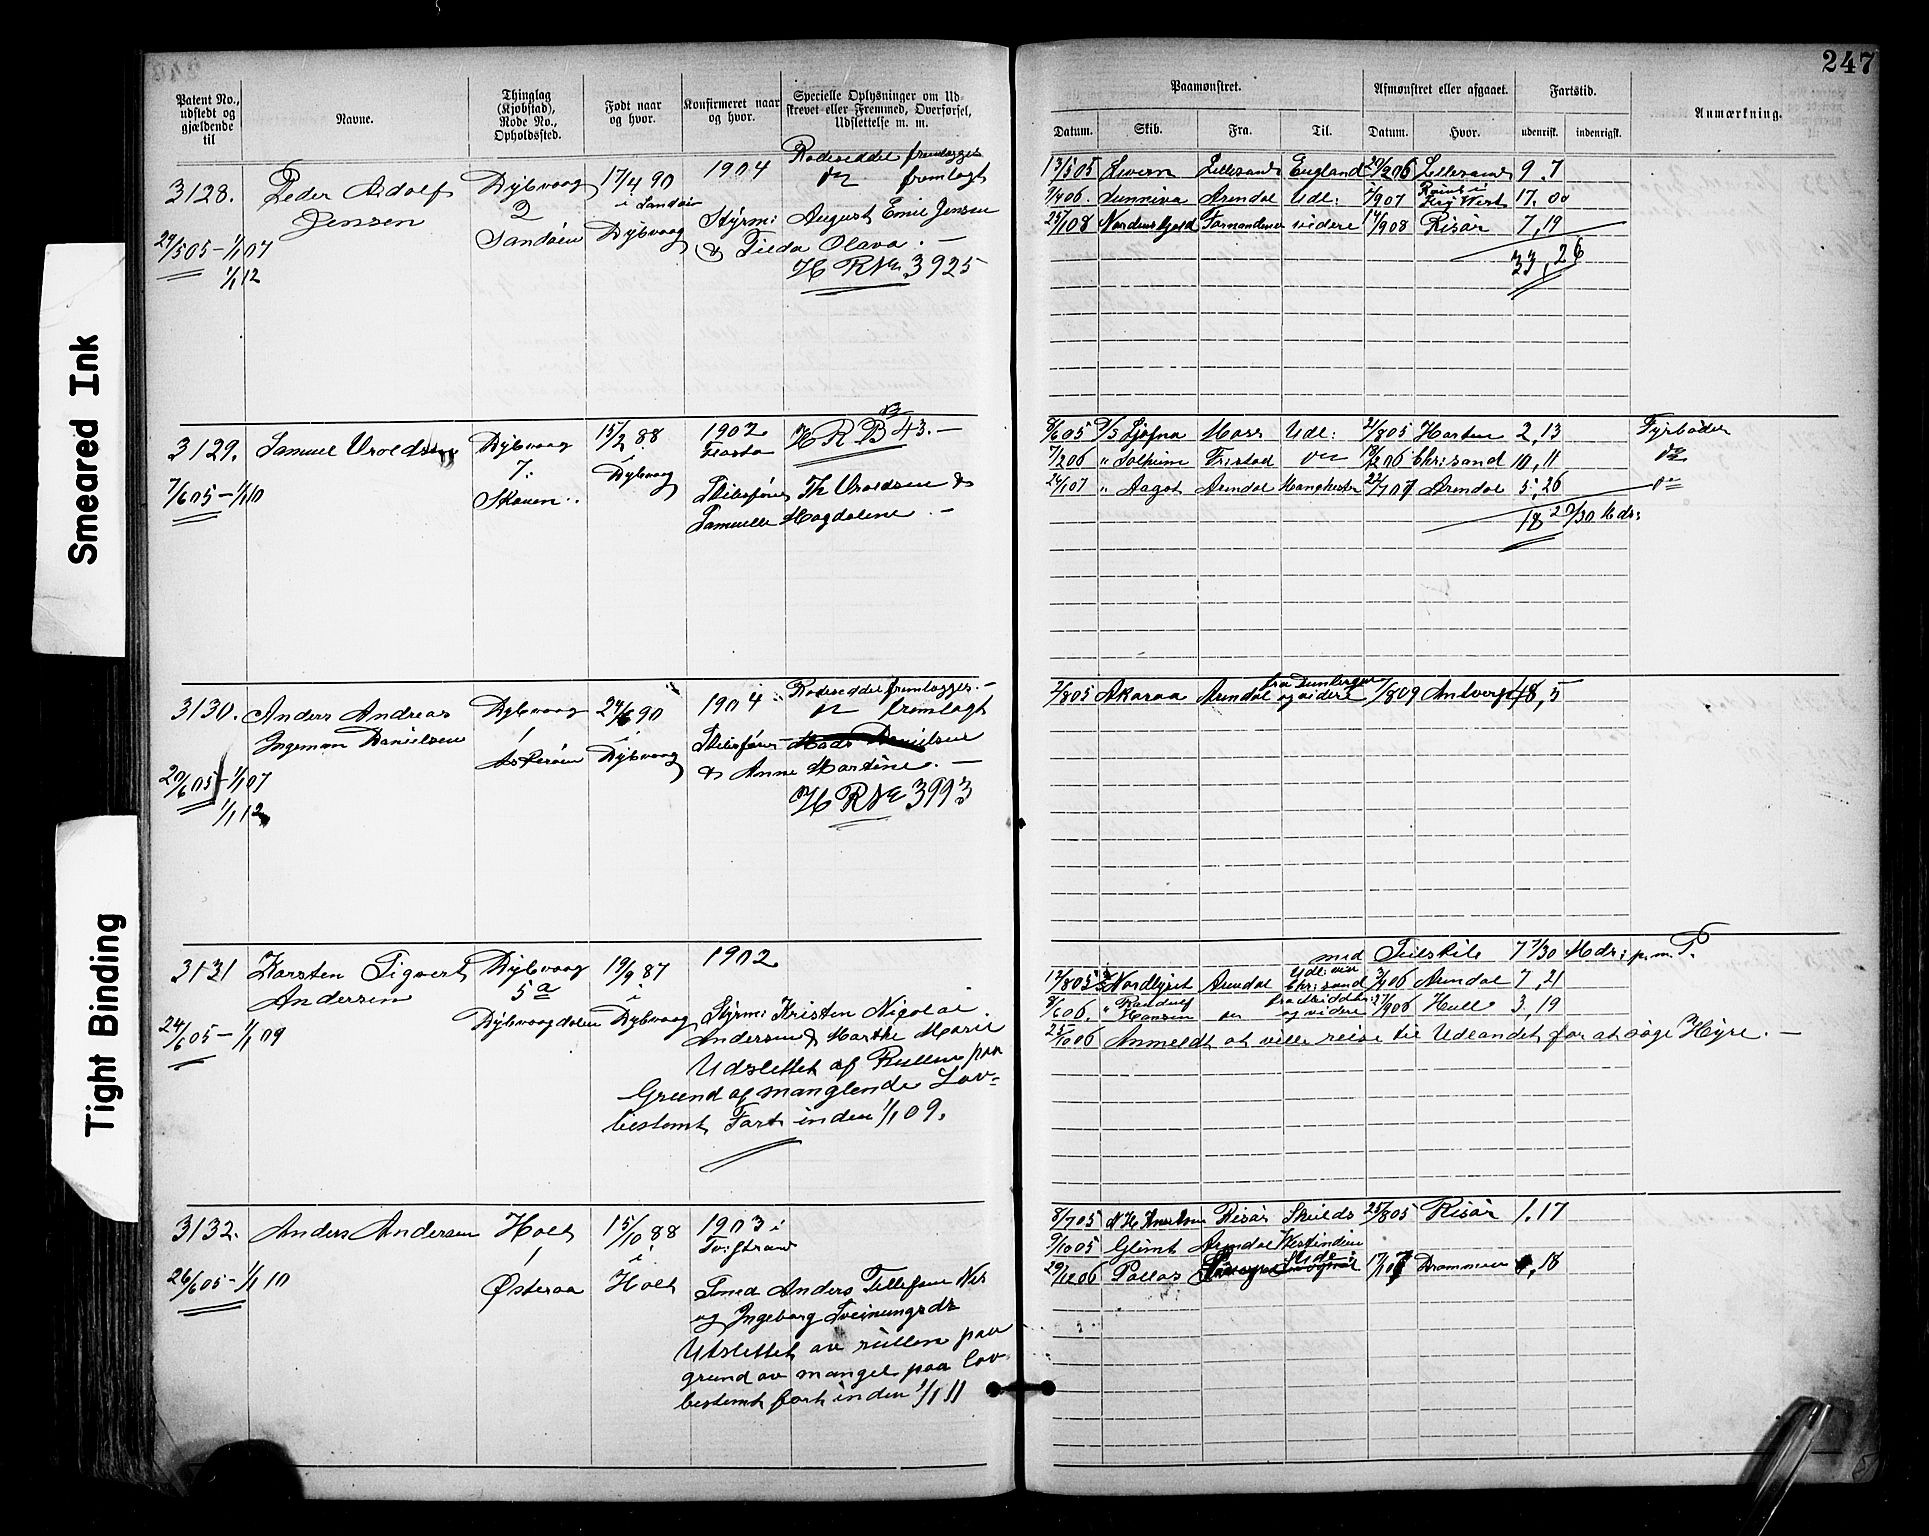 247
Patent No., udstedt og gjældende til
Navne.
Thinglag (Kjøbstad), Rode No., Opholdssted.
Født naar og hvor.
Konfirmeret naar og hvor.
Specielle Oplysninger om Udskrevet eller Fremmed, Overførsel, Udslettelse m. m.
Paamønstret.
Afmønstret eller afgaaet.
Fartstid.
Anmærkning.
Datum. Skib. Fra. Til. Datum. Hvor. udenrigst. indenrigst.
Smeared Ink
Tight Binding
3128. Peder Adolf Jensen
24/5 05 – 1/1 07
1/1 12
Dybvaag 2 Sandøen
17/4 90 i Sandøen Dybvaag
1904
Rodeseddel fremlægges
do fremlagt
Styrm: August Emil Jensen
& Tilda Olava. –
H R Nr. 3925
13/5 05 Levern Lillesand England 20/2 06 Lillesand 9.7
9/4 06 Sunniva Arendal Udl: 2/9 07 17.00
25/1 08 Nordenskjold videre 14/9 08 Risør 7,19
33,26
3129. Samuel Vroldsen
7/6 05 – 1/1 10
Dybvaag 7: Skauen.
15/2 88 i Dybvaag
1902 Flosta
H R B 43. –
Th Vroldsen &
Samuelle Magdalene. –
8/6 05 D/S Sjøfna Moss Udl: 2/8 05 Horten 2,13 Fyrbøder
7/2 06 " Solheim Fr:stad do 18/12 06 Chr:sand 10,11 do
24/1 07 " Aagot Arendal Manchester 22/7 07 Arendal 5,26 do
18 20/30 Mdr:
3130. Anders Andreas Ingeman Danielsen
20/6 05 – 1/1 07
1/1 12
Dybvaag 1 Askerøen
24/6 90 i Dybvaag
1904
Rodeseddel fremlægges. –
do fremlagt
Mads Danielsen
& Anne Martine. –
H R Nr 3993
2/8 05 Akaroa Arendal og videre 1/8 09 Antverp 48,5
3131 Karsten Sigvert Andersen
24/6 05 – 1/1 09
Dybvaag 5a Dybvaagdalen
19/9 87 i Dybvaag
1902
Styrm: Kristen Nicolai
Andersen & Marthe Marie
Udslettet af Rullen paa
Grund af manglende Lov-
bestemt Fart inden 1/1 09.
med Seilskib 7 7/30 Mdr: p.m. P.
12/8 05 Nordlyset Arendal Udl: via Chr:sand 3/4 06 Arendal 7,21
8/6 06. " Randulf Hansen do og videre 27/9 06 Hull 3,19
25/10 06 Anmeldt at ville reise til Udlandet for at søge Hyre. –
3132. Anders Andersen
26/6 05 – 1/1 10
Holt 1 Østeraa
15/10 88 i Holt
1903 i Tv:strand
Smed Anders Tellefsen Næs
og Ingeborg Tveinungsdr
Utslettet av rullen paa
grund av mangel paa lov-
bestemt fart inden 1/1 11
8/7 05 N H Knudsen Risør Skields 25/8 05 Risør 1.17
9/10 05 Glimt Arendal Westindien
29/12 06 Pallas 17/1 07 Drammen ,18